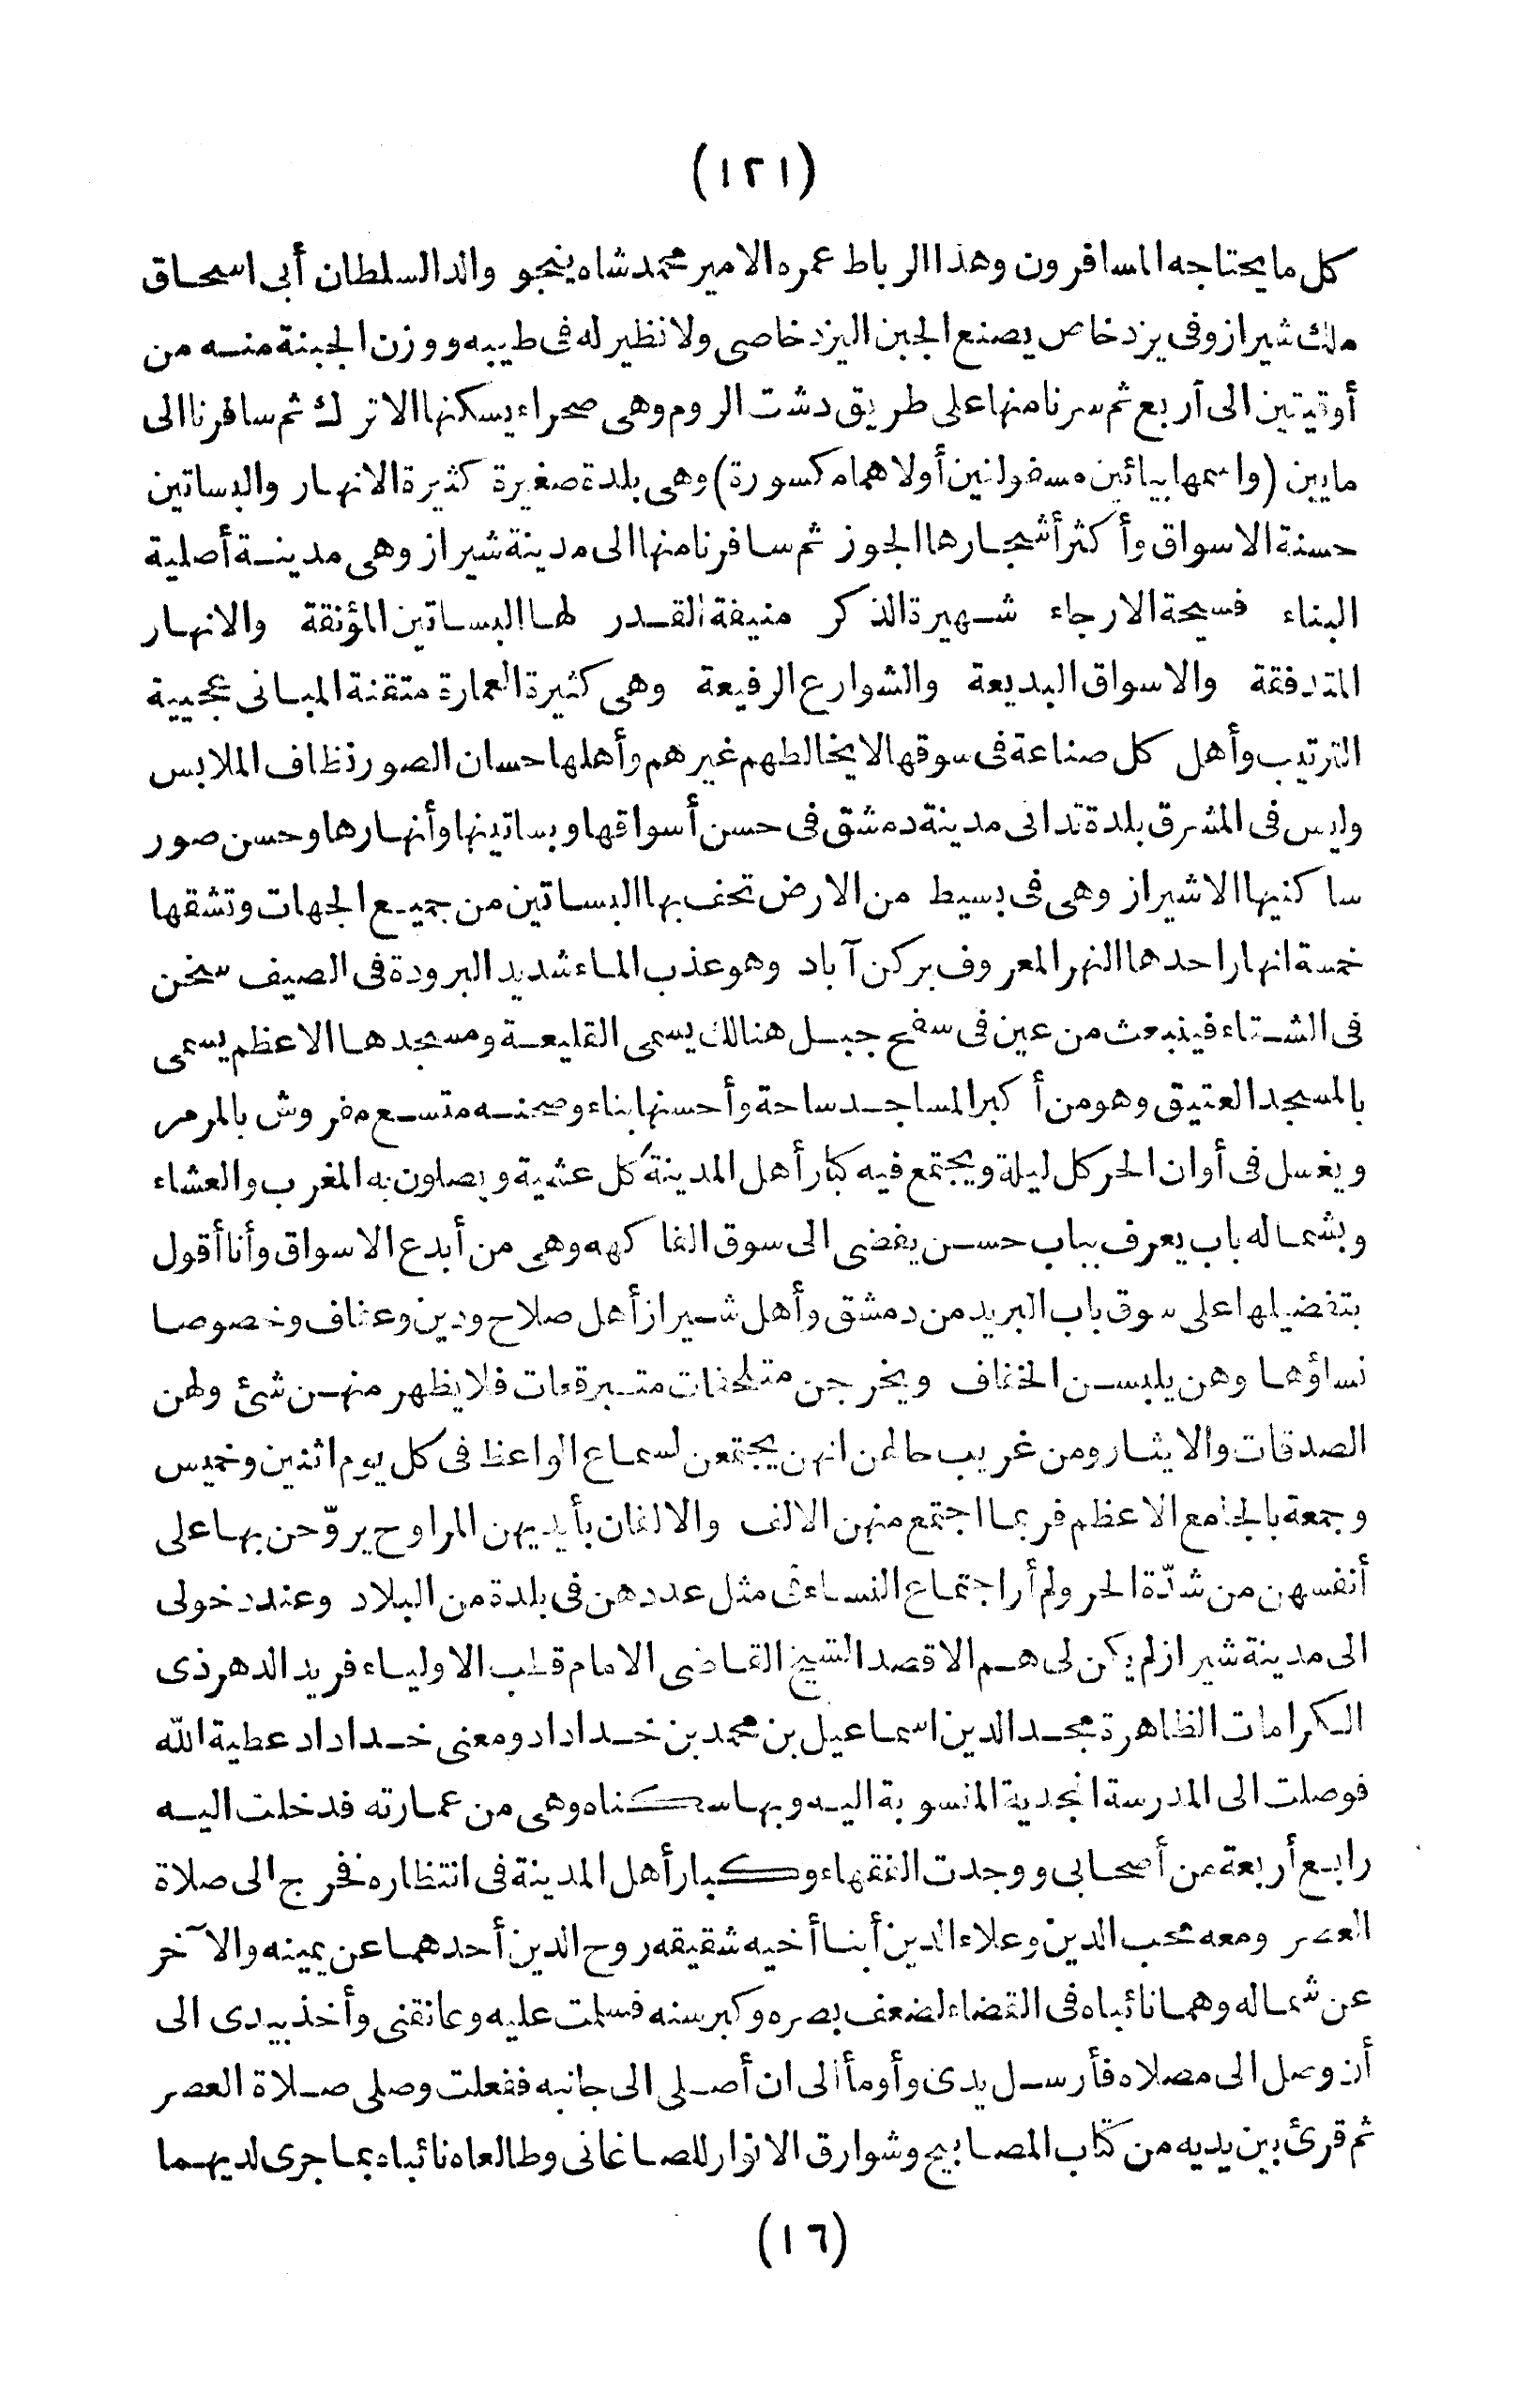 (١٢١)
كل مايحتاجه المسافرون وهذا الرباط عمره الامير محمد شاه ينجو والد السلطان أبى اسحاق
ملك شيراز وفى يزدخاص يصنع الجبن اليزدخاصى ولا نظير له فى طيبه ووزن الجبنة منه من
أوقيتين الى أربع ثم سرنا منها على طريق دشت الروم وهى صحراء يسكنها الاترك ثم سافرنا الى
مايين (واسمها بيائين مسفولتين أولاهما مكسورة) وهى بلدة صغيرة كثيرة الانهار والبساتين
حسنة الاسواق وأكثر أشجارها الجوز ثم سافرنا منها الى مدينة شيراز وهى مدينة أصلية
البناء فسيحة الارجاء شهيرة الذكر منيفة القدر لها البساتين المؤنقة والانهار
المتدفقة والاسواق البديعة والشوارع الرفيعة وهى كثيرة العمارة متقنة المبانى عجيبة
الترتيب وأهل كل صناعة فى سوقها لا يخالطهم غيرهم وأهلها حسان الصور نظاف الملابس
وليس فى المشرق بلدة تدانى مدينة دمشق فى حسن أسواقها وبساتينها وأنهارها وحسن صور
ساكنيها الا شيراز وهى فى بسيط من الارض تحف بها البساتين من جميع الجهات وتشقها
خمسة انهار احدها النهر المعروف بركن آباد وهو عذب الماء شديد البرودة فى الصيف سخن
فى الشتاء فينبعث من عين فى سفح جبل هنالك يسمى القليعة ومسجدها الاعظم يسمى
بالمسجد العتيق وهو من أكبر المساجد ساحة وأحسنها بناء وصحنه متسع مفروش بالمرمر
ويغسل فى أوان الحر كل ليلة ويجتمع فيه كبار أهل المدينة كل عشية ويصلون به المغرب والعشاء
وبشماله باب يعرف بباب حسن يفضى الى سوق الفاكهه وهى من أبدع الاسواق وأنا أقول
بتفضيلها على سوق باب البريد من دمشق وأهل شيراز أهل صلاح ودين وعفاف وخصوصا
نساؤها وهن يلبسن الخفاف ويخرجن متلحفات متبرقعات فلا يظهر منهن شئ ولهن
الصدقات والايثار ومن غريب حالهن انهن يجتمعن لسماع الواعظ فى كل يوم اثنين وخميس
وجمعة بالجامع الاعظم فربما اجتمع منهن الالف والالفان بأيديهن المراوح يروّحن بها على
أنفسهن من شدّة الحر ولم أر اجتماع النساء فى مثل عددهن فى بلدة من البلاد وعند دخولى
الى مدينة شيراز لم يكن لى هم الا قصد الشيخ القاضى الامام قطب الاولياء فريد الدهر ذى
الكرامات الظاهرة مجد الدين اسماعيل بن محمد بن خداداد ومعنى خداداد عطية الله
فوصلت الى المدرسة المجدية المنسوبة اليه وبها سكناه وهى من عمارته فدخلت اليه
رابع أربعة من أصحابى ووجدت الفقهاء وكبار أهل المدينة فى انتظاره فخرج الى صلاة
العصر ومعه محب الدين وعلاء الدين أبنا أخيه شقيقه روح الدين أحدهما عن يمينه والآخر
عن شماله وهما نائباه فى القضاء لضعف بصره وكبر سنه فسلمت عليه وعانقنى وأخذ بيدى الى
أن وصل الى مصلاه فأرسل يدى وأومأ الى ان أصلى الى جانبه ففعلت وصلى صلاة العصر
ثم قرئ بين يديه من كتاب المصابيح وشوارق الانوار للصاغانى وطالعاه نائباه بما جرى لديهما
(١٦)